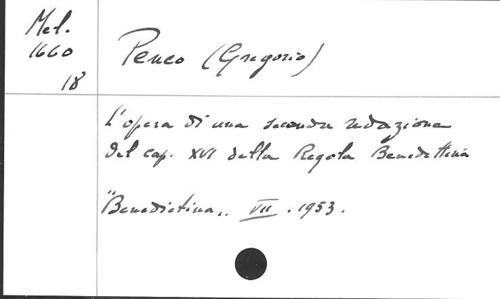 Mel.
1660
18
Penco (Gregorio)
L'opera di una seconda redazione
del cap. XVI della Regola Benedettina
"Benedictina„. VII. 1953.